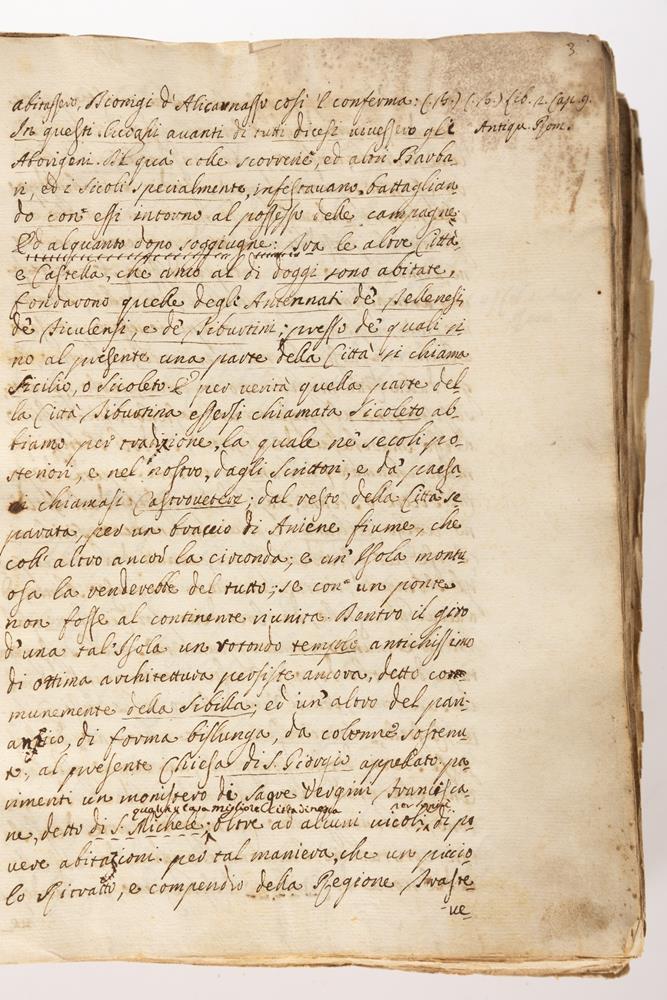 3
abitassero, Dionigi d'Alicarnasso così 'l conferma: (.b.)
(.b.) Lib. 2. Cap. 9.
Antiqu. Rom.
In questi luoghi avanti di tutti dicesi vivessero gli
Aborigeni. Di quà colle scorrerie, ed altri Barba
ri, ed i Sicoli specialmente, infestavano, battaglian
do con essi intorno al possesso delle campagne.
Ed alquanto dopo soggiugne: Tra le altre Città,
e Castella, che anco al dì d'oggi sono abitate,
fondarono quelle degli Antennati de' Pellenesi,
de' Siculensi, e de' Tiburtini; presso de' quali si
no al presente una parte della Città si chiama
Sicilio, o Sicoleto. E per verità quella parte del
la Città Tiburtina essersi chiamata Sicoleto ab-
biamo per tradizione, la quale ne' secoli po-
steriori, e nel nostro, dagli Scrittori, e da' paesa
ni chiamasi Castrovetere; dal resto della Città se
parata, per un braccio di Aniene fiume, che
coll' altro ancor la circonda; e un' Isola montu
osa la renderebbe del tutto; se con un ponte
non fosse al continente riunita. Dentro il giro
d'una tal' Isola un rotondo tempio antichissimo
di ottima architettura persiste ancora, detto com
munemente della Sibilla; ed un' altro del pari
antico, di forma bislunga, da colonne sostenu
to, al presente Chiesa di S. Giorgio appellato. pa
rimenti un monistero di sagre Vergini Francesca
ne, detto di S. Michele; oltre ad alcuni vicoli di po
vere abitazioni. per tal maniera, che un piccio
lo Ritratto, e compendio della Regione Traste-
ve-